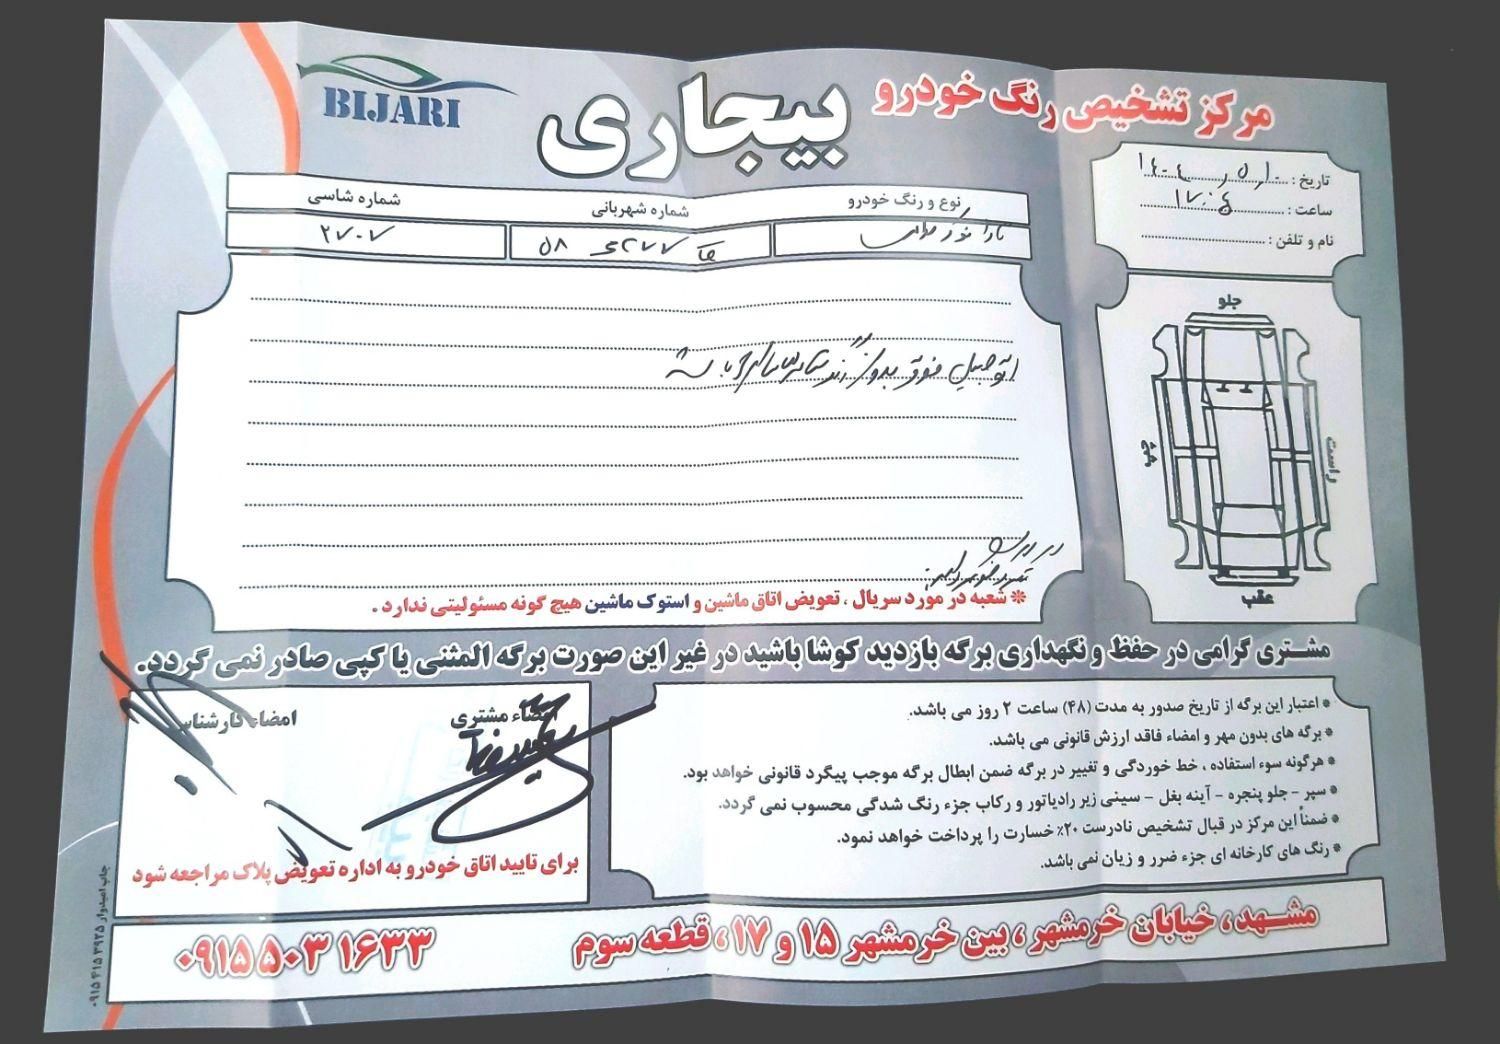 مرکز تشخیص رنگ خودرو
بیجاری
BIJARI
تاریخ :
ساعت : ۱۷:۰۴
نام و تلفن :
نوع و رنگ خودرو
شماره شهربانی
شماره شاسی
۵۸
۲۷۰۷
جلو
راست
چپ
عقب
اتومبیل فوق بدون رنگ
* شعبه در مورد سریال ، تعویض اتاق ماشین و استوک ماشین هیچ گونه مسئولیتی ندارد .
مشتری گرامی در حفظ و نگهداری برگه بازدید کوشا باشید در غیر این صورت برگه المثنی یا کپی صادر نمی گردد.
* اعتبار این برگه از تاریخ صدور به مدت (۴۸) ساعت ۲ روز می باشد.
* برگه های بدون مهر و امضاء فاقد ارزش قانونی می باشد.
* هرگونه سوء استفاده ، خط خوردگی و تغییر در برگه ضمن ابطال برگه موجب پیگرد قانونی خواهد بود.
* سپر - جلو پنجره - آینه بغل - سینی زیر رادیاتور و رکاب جزء رنگ شدگی محسوب نمی گردد.
* ضمناً این مرکز در قبال تشخیص نادرست ۲۰٪ خسارت را پرداخت خواهد نمود.
* رنگ های کارخانه ای جزء ضرر و زیان نمی باشد.
امضاء مشتری
امضاء کارشناس
برای تایید اتاق خودرو به اداره تعویض پلاک مراجعه شود
مشهد، خیابان خرمشهر ، بین خرمشهر ۱۵ و ۱۷، قطعه سوم
۰۹۱۵ ۵۰۳ ۱۶۳۳
چاپ امیدوار ۳۹۲۵ ۴۱۵ ۰۹۱۵